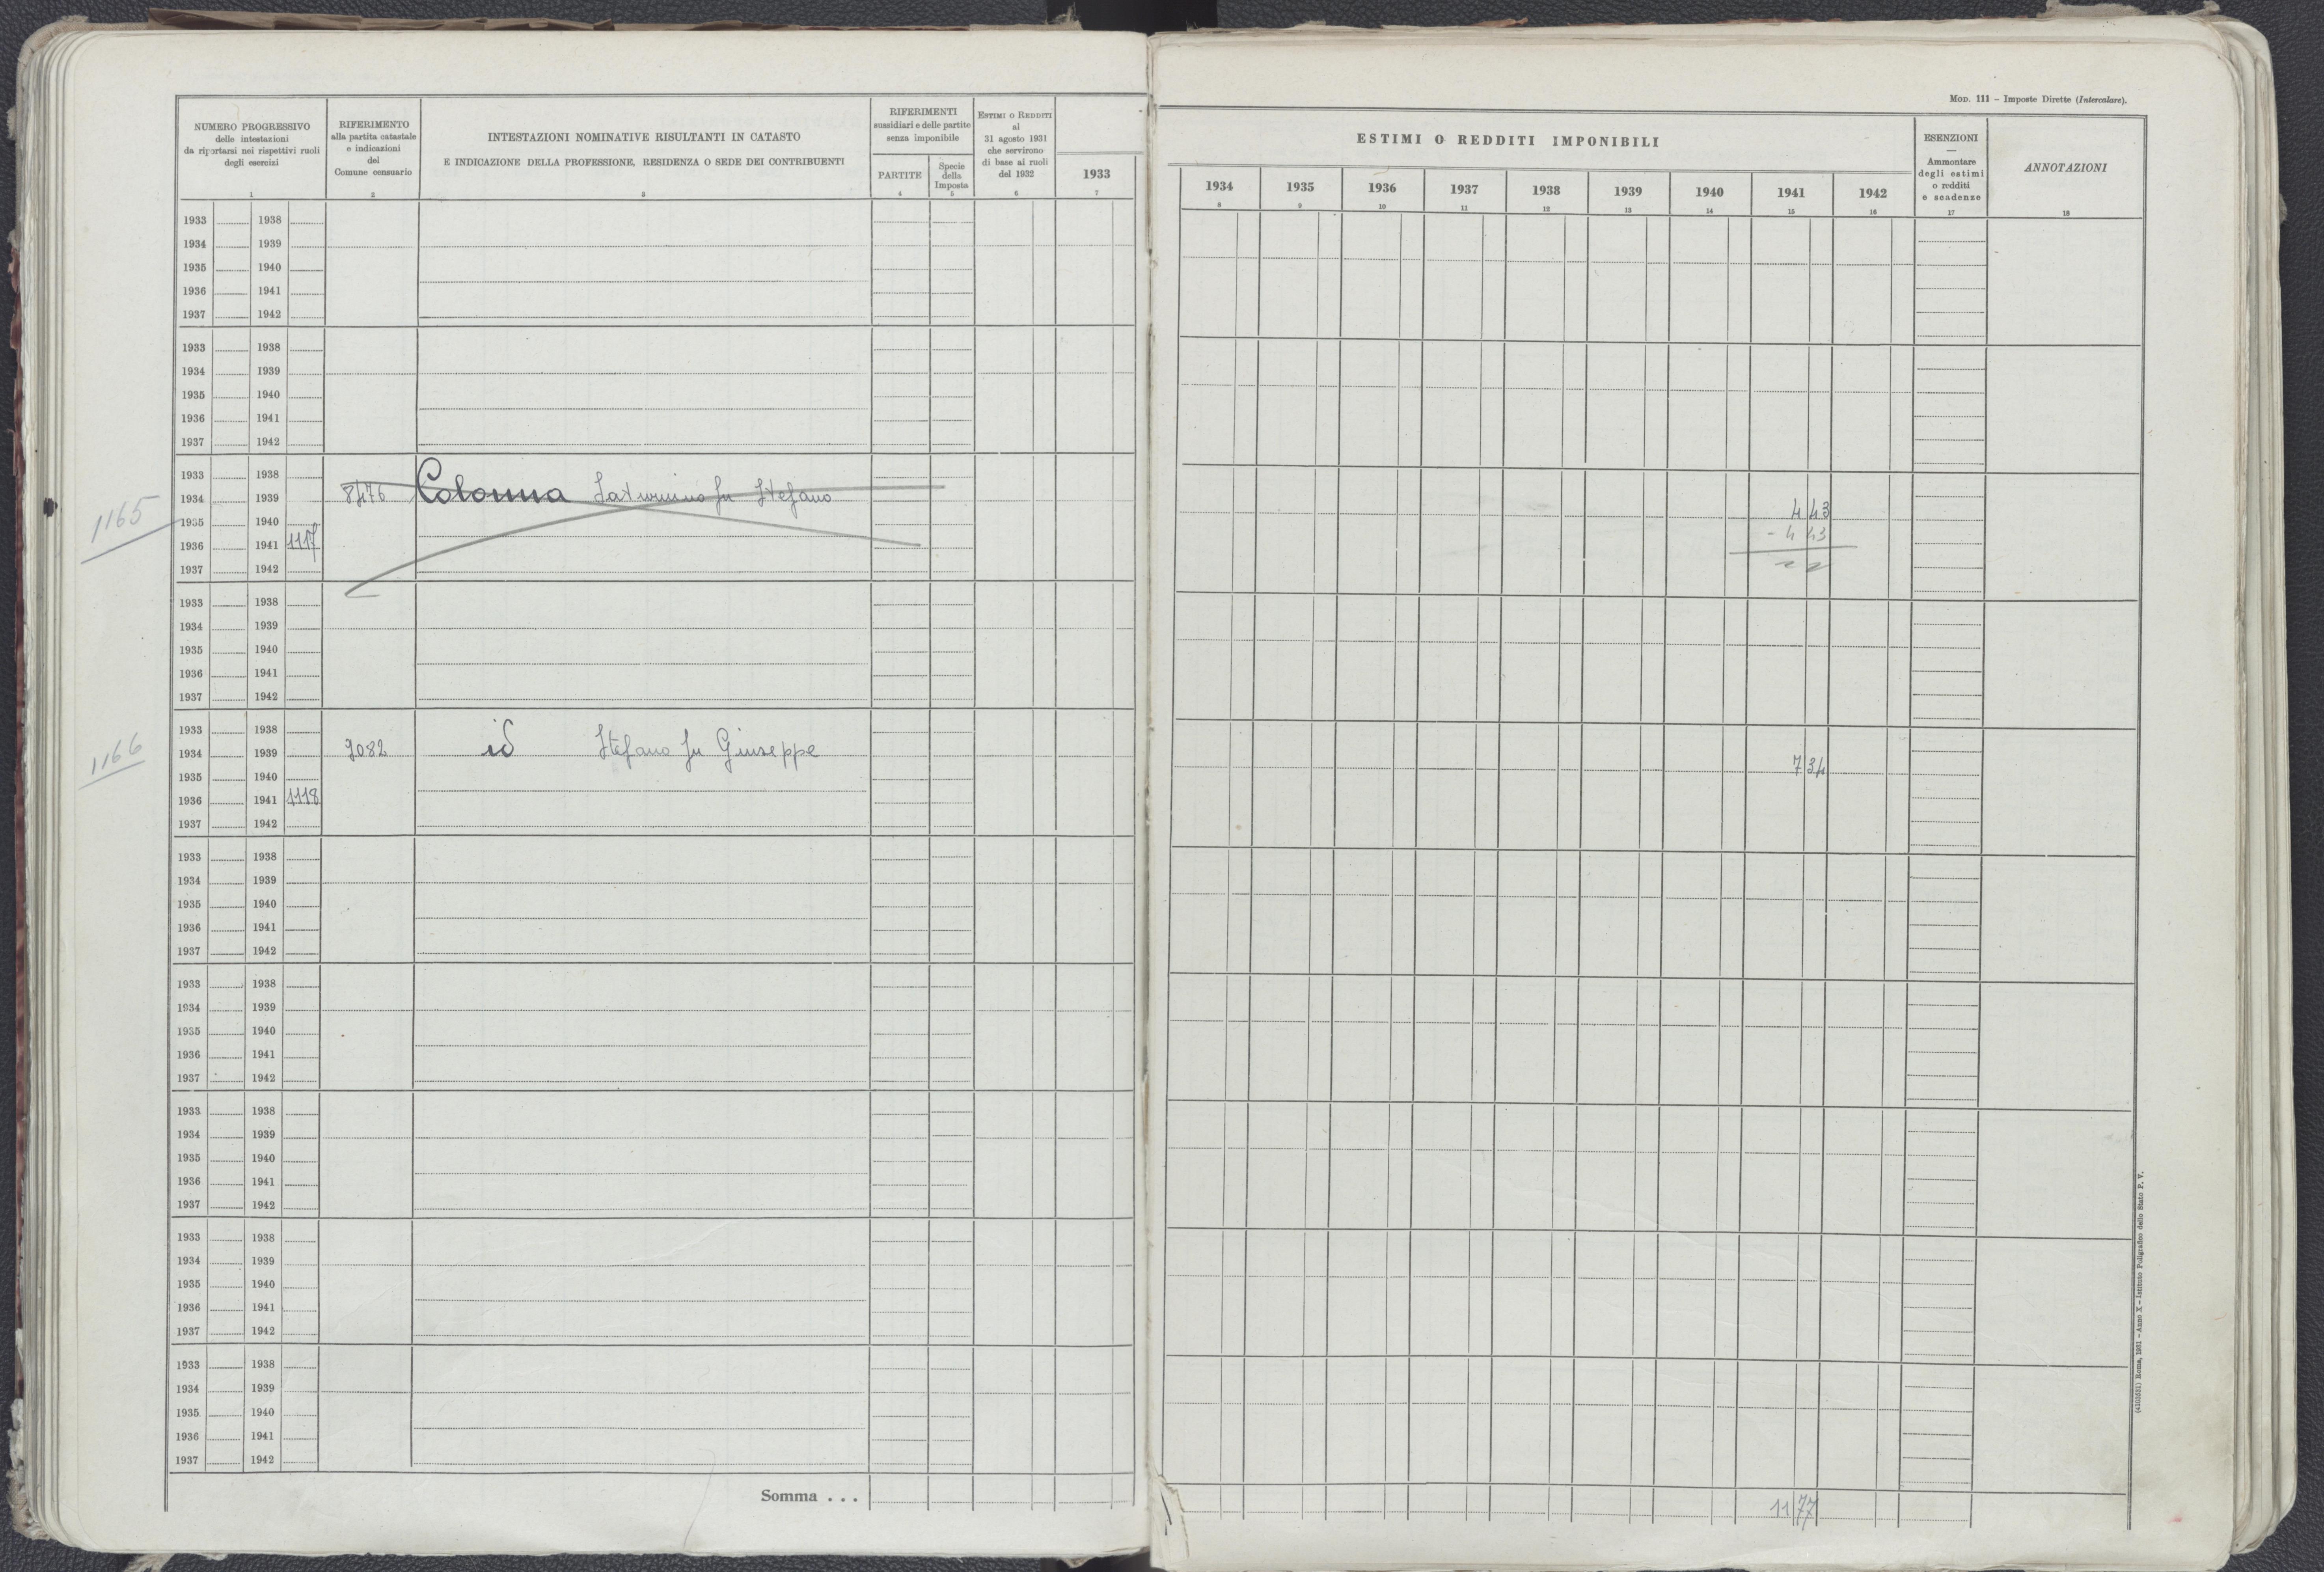 MOD. 111 – Imposte Dirette (Intercalare).
NUMERO PROGRESSIVO
delle intestazioni
da riportarsi nei rispettivi ruoli
degli esercizi
1
RIFERIMENTO
alla partita catastale
e indicazioni
del
Comune censuario
2
INTESTAZIONI NOMINATIVE RISULTANTI IN CATASTO
E INDICAZIONE DELLA PROFESSIONE, RESIDENZA O SEDE DEI CONTRIBUENTI
3
RIFERIMENTI
sussidiari e delle partite
senza imponibile
PARTITE
4
Specie
della
Imposta
5
ESTIMI O REDDITI
al
31 agosto 1931
che servirono
di base ai ruoli
del 1932
6
1933
7
ESTIMI O REDDITI IMPONIBILI
1934 1935 1936 1937 1938 1939 1940 1941 1942
8 9 10 11 12 13 14 15 16
ESENZIONI
—
Ammontare
degli estimi
o redditi
e scadenze
17
ANNOTAZIONI
18
1933 1938
1934 1939
1935 1940
1936 1941
1937 1942
1933 1938
1934 1939
1935 1940
1936 1941
1937 1942
1933 1938
1934 1939 8476 Colonna Saturnino fu Stefano 443
1165 1935 1940 - 443
1936 1941 1117
1937 1942
1933 1938
1934 1939
1935 1940
1936 1941
1937 1942
1933 1938
1166 1934 1939 9082 id Stefano fu Giuseppe 734
1935 1940
1936 1941 1118
1937 1942
1933 1938
1934 1939
1935 1940
1936 1941
1937 1942
1933 1938
1934 1939
1935 1940
1936 1941
1937 1942
1933 1938
1934 1939
1935 1940
1936 1941
1937 1942
1933 1938
1934 1939
1935 1940
1936 1941
1937 1942
1933 1938
1934 1939
1935 1940
1936 1941
1937 1942
Somma . . . 1177
(4103531) Roma, 1931 – Anno X – Istituto Poligrafico dello Stato P. V.